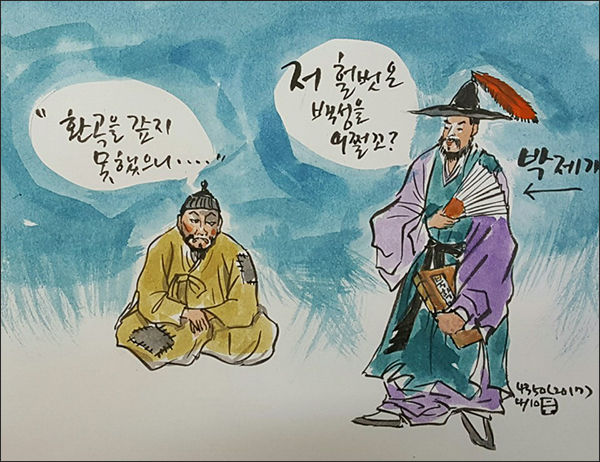 "환곡을 갚지
못했으니....."
저 헐벗은
백성을
어쩔꼬?
박제가
4350(2017)
4/10